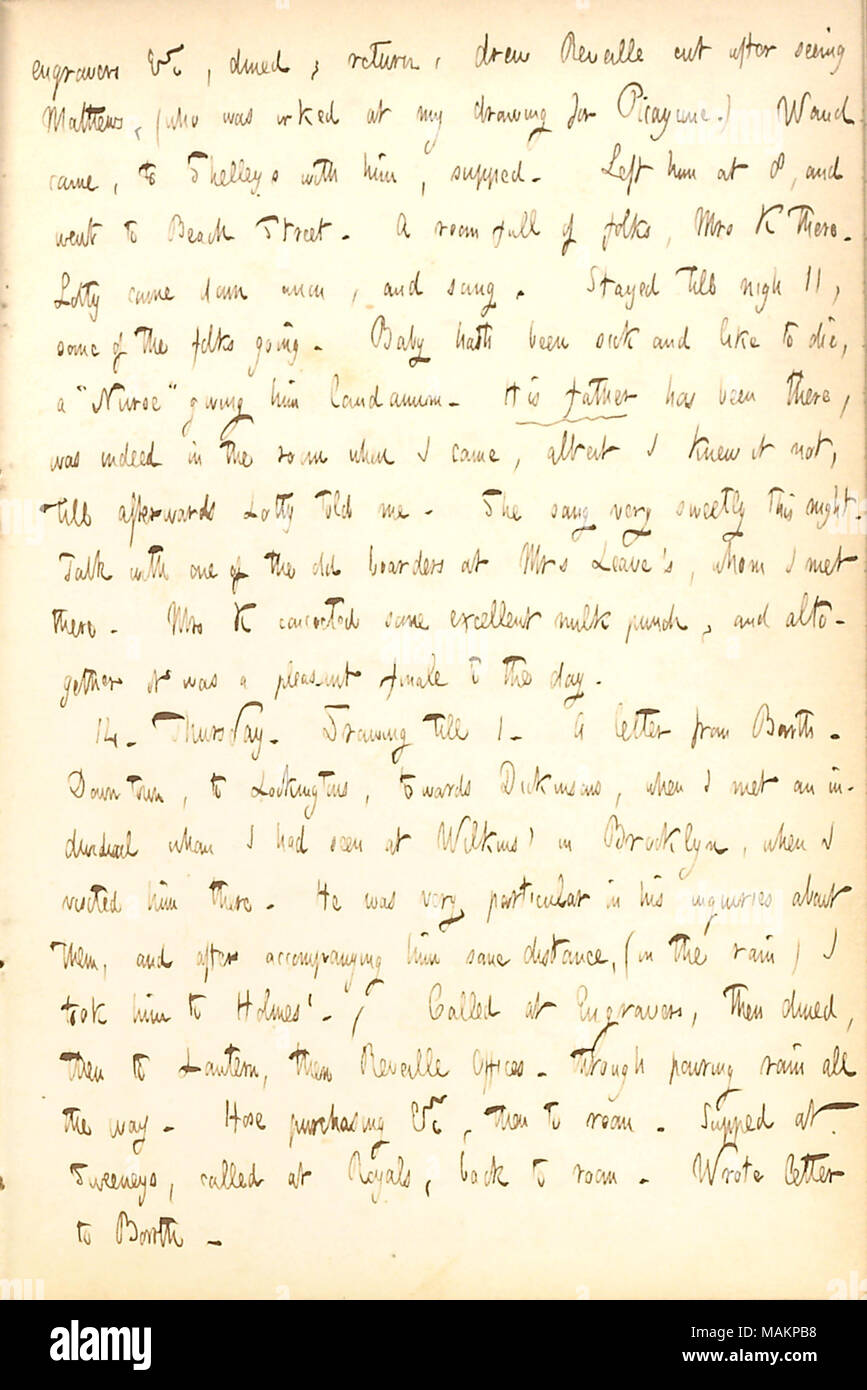 engravers &c, dined, return, drew Reveille cut after seeing
Mathews, (who was irked at my drawing for Picayune.) Waud
came, to Shelleys with him, supped. Left him at 8, and
went to Beach Street. A room full of folks, Mrs K there.
Lotty came down anon, and sang. Stayed till nigh 11,
some of the folks going. Baby hath been sick and like to die,
a "Nurse" giving him laudanum. His father has been there,
was indeed in the room when I came, albeit I knew it not,
till afterwards Lotty told me. She sang very sweetly this night.
Talk with one of the old boarders at Mrs Leave's, whom I met
there. Mrs K concocted some excellent milk punch, and alto-
gether it was a pleasant finale to the day.
14. Thursday. Drawing till 1. A letter from Barth.
Down town, to Lockingtons, towards Dickinsons, when I met an in-
dividual whom I had seen at Wilkins' in Brooklyn, when I
visited him there. He was very particular in his inquiries about
them, and after accompanying him some distance, (in the rain) I
took him to Holmes'. Called at Engravers, then dined,
then to Lantern, then Reveille Offices. through pouring rain all
the way. Hose purchasing &c, then to room. Supped at
Sweeneys, called at Royals, back to room. Wrote letter
to Barth.
alamy
Image ID: MAKPB8
www.alamy.com